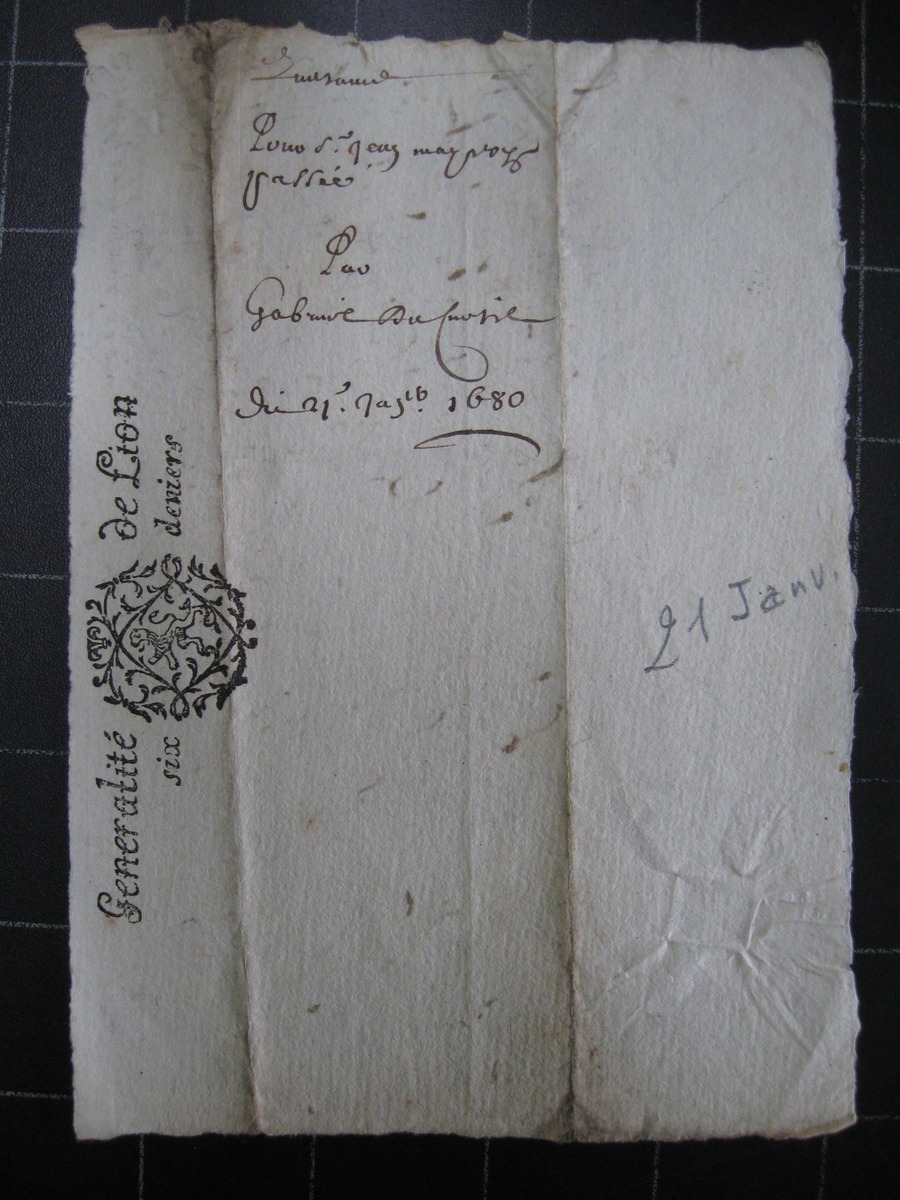 Quittance
Pour Sr. Jean
passée
Par
Gabriel Du
Du 21e. Janvr. 1680
21 Janv.
Generalité de Lion
six deniers